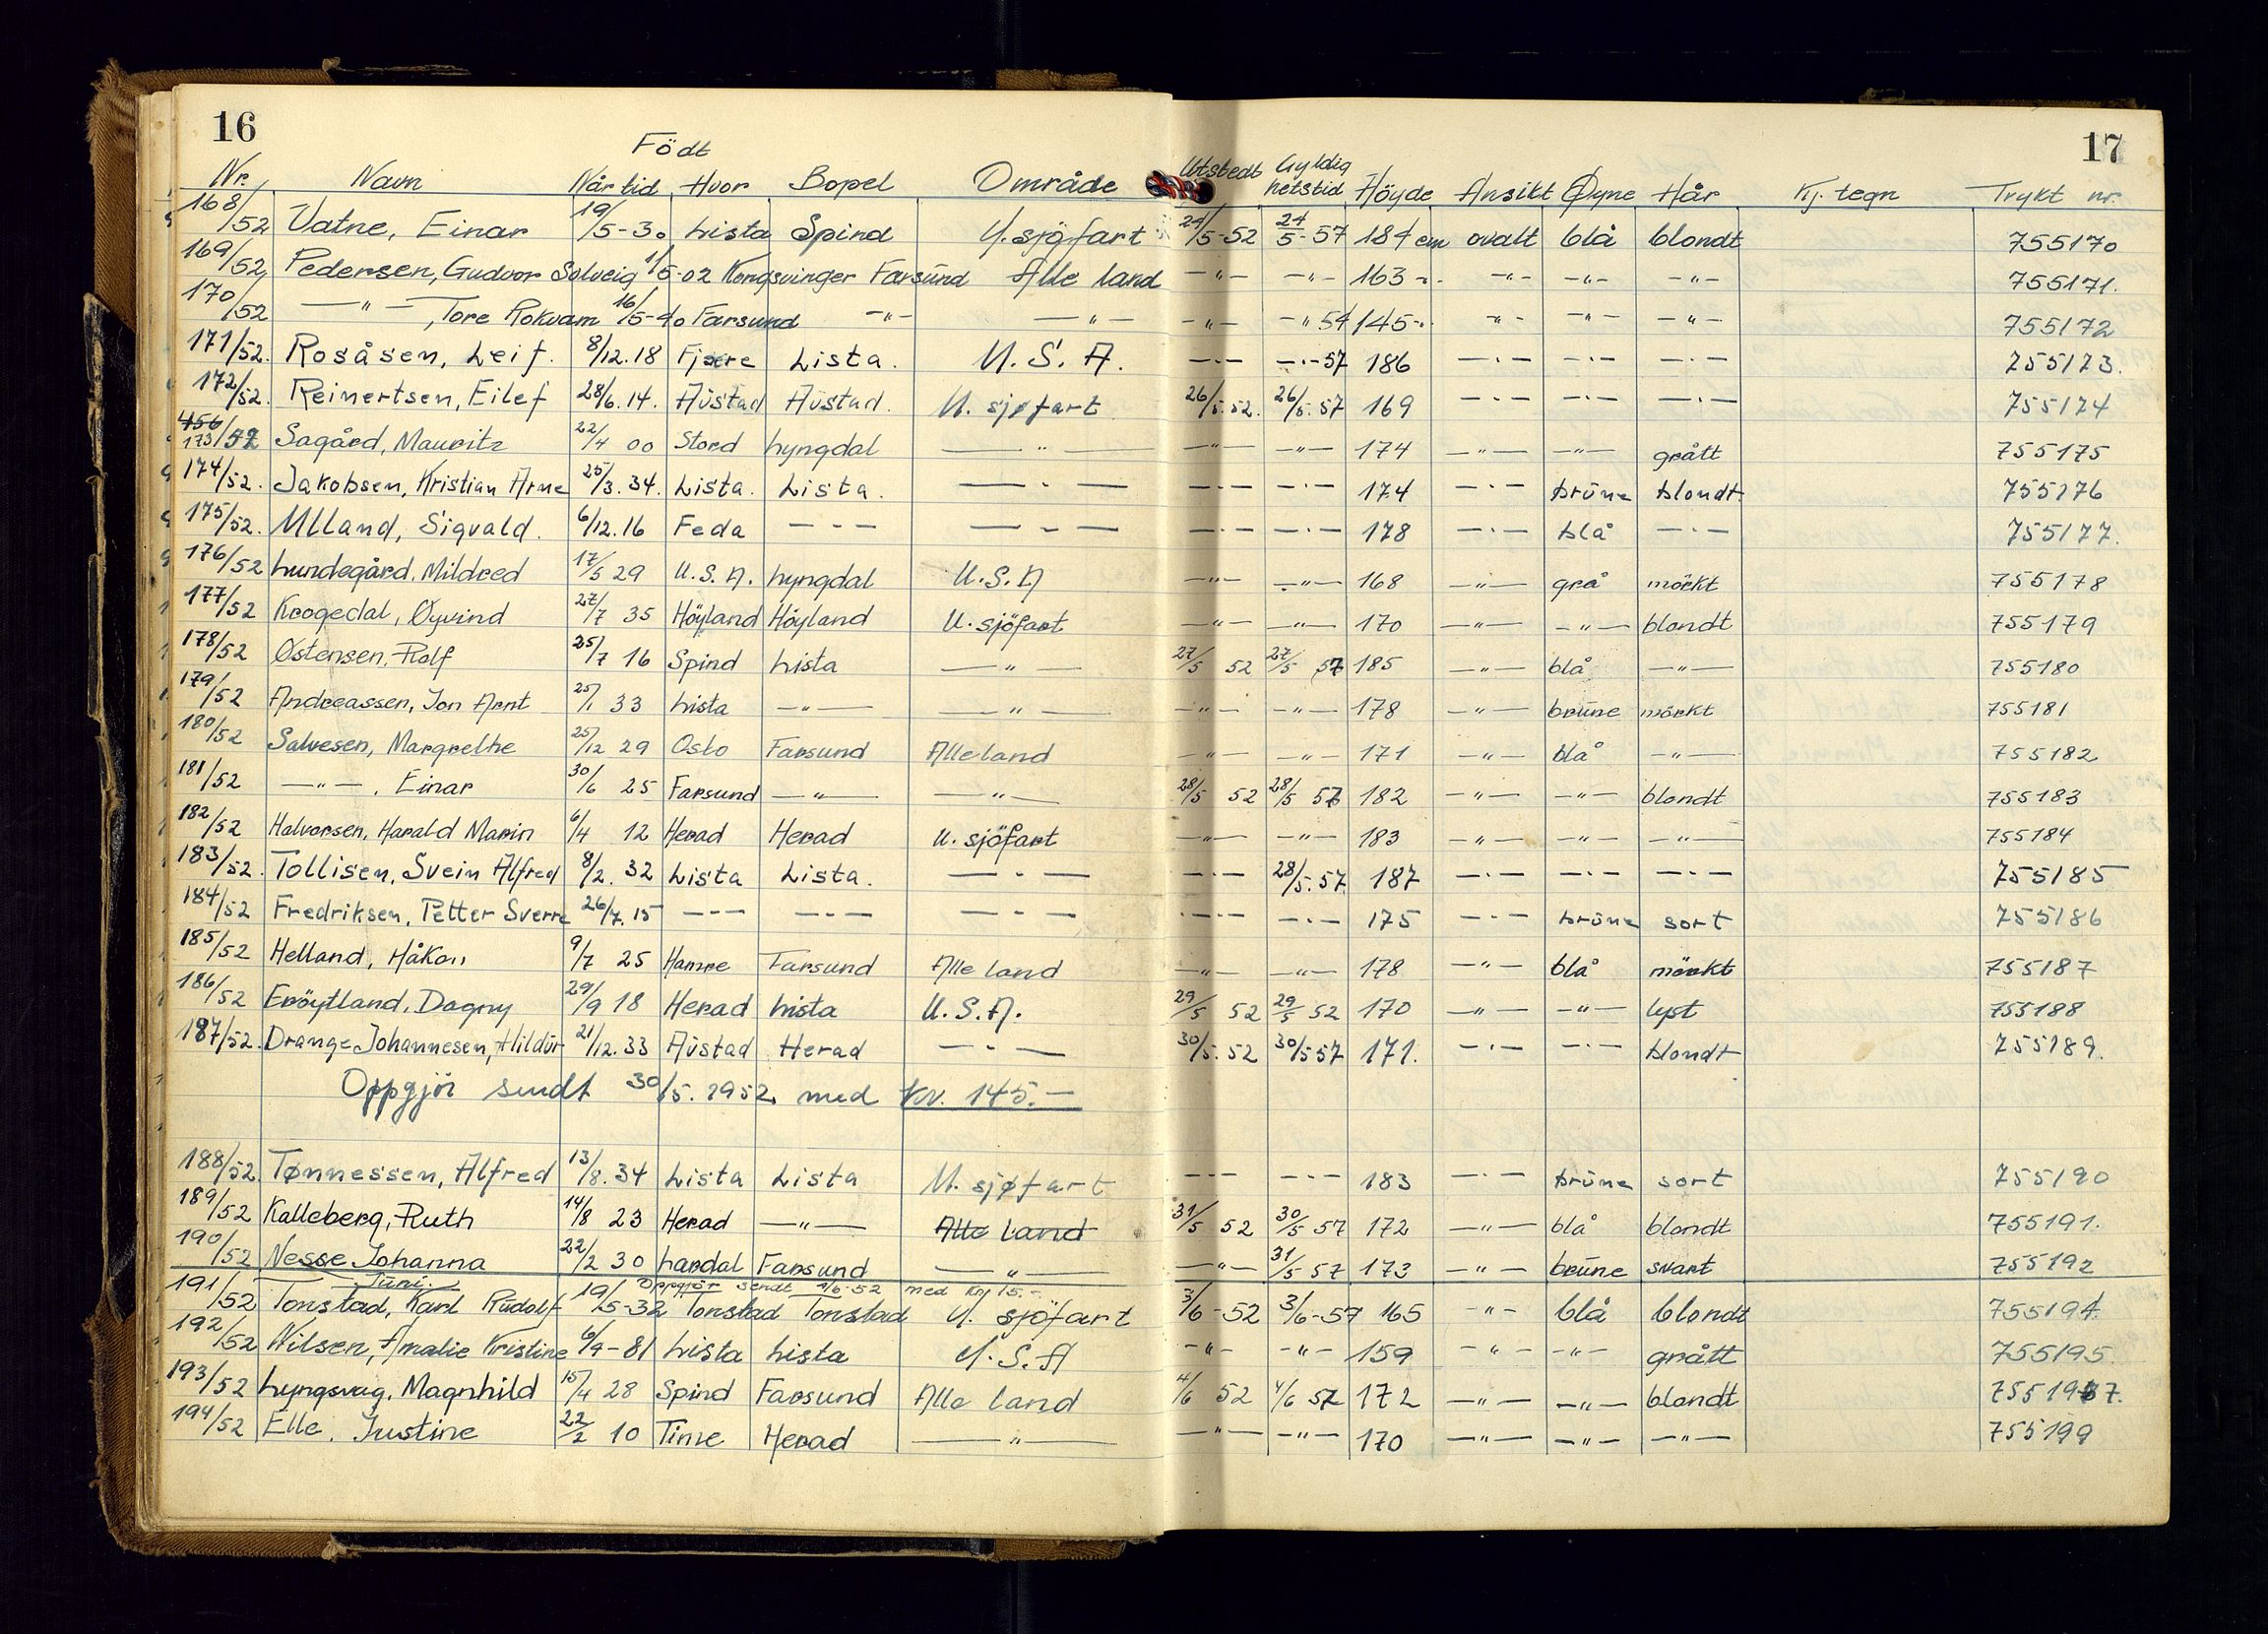 16
17
Födt
Nr. Navn Når tid Hvor Bopel Område Utstedt Gyldighetstid Höyde Ansikt Øyne Hår Kj. tegn Trykt nr.
168/52 Vatne, Einar 19/5-30 Lista Spind U. sjöfart 24/5-52 24/5-57 184 cm ovalt blå blondt 755170
169/52 Pedersen, Gudvor Solveig 1/5-02 Kongsvinger Farsund Alle land -"- -"- 163 -"- -"- -"- -"- 755171.
170/52 -"-, Tore Rokvam 16/5-40 Farsund -"- -"- -"- -"- 54 145 -"- -"- -"- -"- 755172
171/52. Rosåsen, Leif. 8/12.18 Fjære Lista. U. S. A. -"- -"-57 186 -"- -"- -"- 755173.
172/52. Reinertsen, Eilef 28/6.14. Aústad Aústad. U. sjøfart 26/5.52. 26/5.57 169 -"- -"- -"- 755174
456 173/52 Sagård, Mauritz 22/4 00 Stord Lyngdal -"- -"- -"- 174 -"- -"- grått 755175
174/52. Jakobsen, Kristian Arne 25/3.34. Lista. Lista. -"- -"- -"- 174 -"- brúne blondt 755176
175/52. Ulland, Sigvald. 6/12.16 Feda -"- -"- -"- -"- 178 -"- blå -"- 755177.
176/52 Lundegård, Mildred 17/5 29 U.S.A. Lyngdal U.S.A -"- -"- 168 -"- grå mörkt 755178
177/52 Krogedal, Øyvind 27/7 35 Höyland Höyland U. sjöfart -"- -"- 170 -"- -"- blondt 755179
178/52 Østensen, Rolf 25/7 16 Spind Lista -"- 27/5 52 27/5 57 185 -"- blå -"- 755180
179/52 Andreassen, Jon Arnt 25/1 33 Lista -"- -"- -"- -"- 178 -"- brune mörkt 755181
180/52 Salvesen, Margrethe 25/12 29 Oslo Farsund Alle land -"- -"- 171 -"- blå -"- 755182
181/52 -"-, Einar 30/6 25 Farsund -"- -"- 28/5 52 28/5 57 182 -"- -"- blondt 755183
182/52 Halvorsen, Harald Marin 6/4 12 Herad Herad U. sjöfart -"- -"- 183 -"- -"- -"- 755184
183/52. Tollisen, Svein Alfred 8/2. 32 Lista Lista. -"- -"- 28/5.57 187 -"- -"- -"- 755185
184/52 Fredriksen, Petter Sverre 26/7.15 -"- -"- -"- -"- -"- 175 -"- brúne sort 755186
185/52 Helland, Håkon 9/7 25 Hamre Farsund Alle land -"- -"- 178 -"- blå mörkt 755187
186/52 Eröytland, Dagny 29/9 18 Herad Lista U.S.A. 29/5 52 29/5 52 170 -"- -"- lyst 755188
187/52. Drange Johannesen, Hildúr 21/12.33 Aústad Herad -"- 30/5.52 30/5 57 171. -"- -"- blondt 755189.
Oppgjör sendt 30/5.1952. med kr. 145.-
188/52. Tønnessen, Alfred 13/8.34 Lista Lista U. sjøfart -"- -"- 183 -"- brúne sort 755190
189/52 Kalleberg, Ruth 14/8 23 Herad -"- Alle land 31/5 52 30/5 57 172 -"- blå blondt 755191.
190/52 Nesse Johanna 22/2 30 Lardal Farsund -"- -"- 31/5 57 173 -"- brune svart 755192
Juni. Oppgjör sendt 4/6-52 med kr 15.-
191/52 Tonstad, Karl Rudolf 19/5-32 Tonstad Tonstad U. sjöfart 3/6-52 3/6-57 165 -"- blå blondt 755194.
192/52 Nilsen, Amalie Kristine 6/9-81 Lista Lista U.S.A -"- -"- 159 -"- -"- grått 755195.
193/52 Lyngsvag, Magnhild 15/4 28 Spind Farsund Alle land 4/6 52 4/6 57 172 -"- -"- blondt 755197.
194/52 Elle, Justine 22/2 10 Time Herad -"- -"- -"- 170 -"- -"- -"- 755199